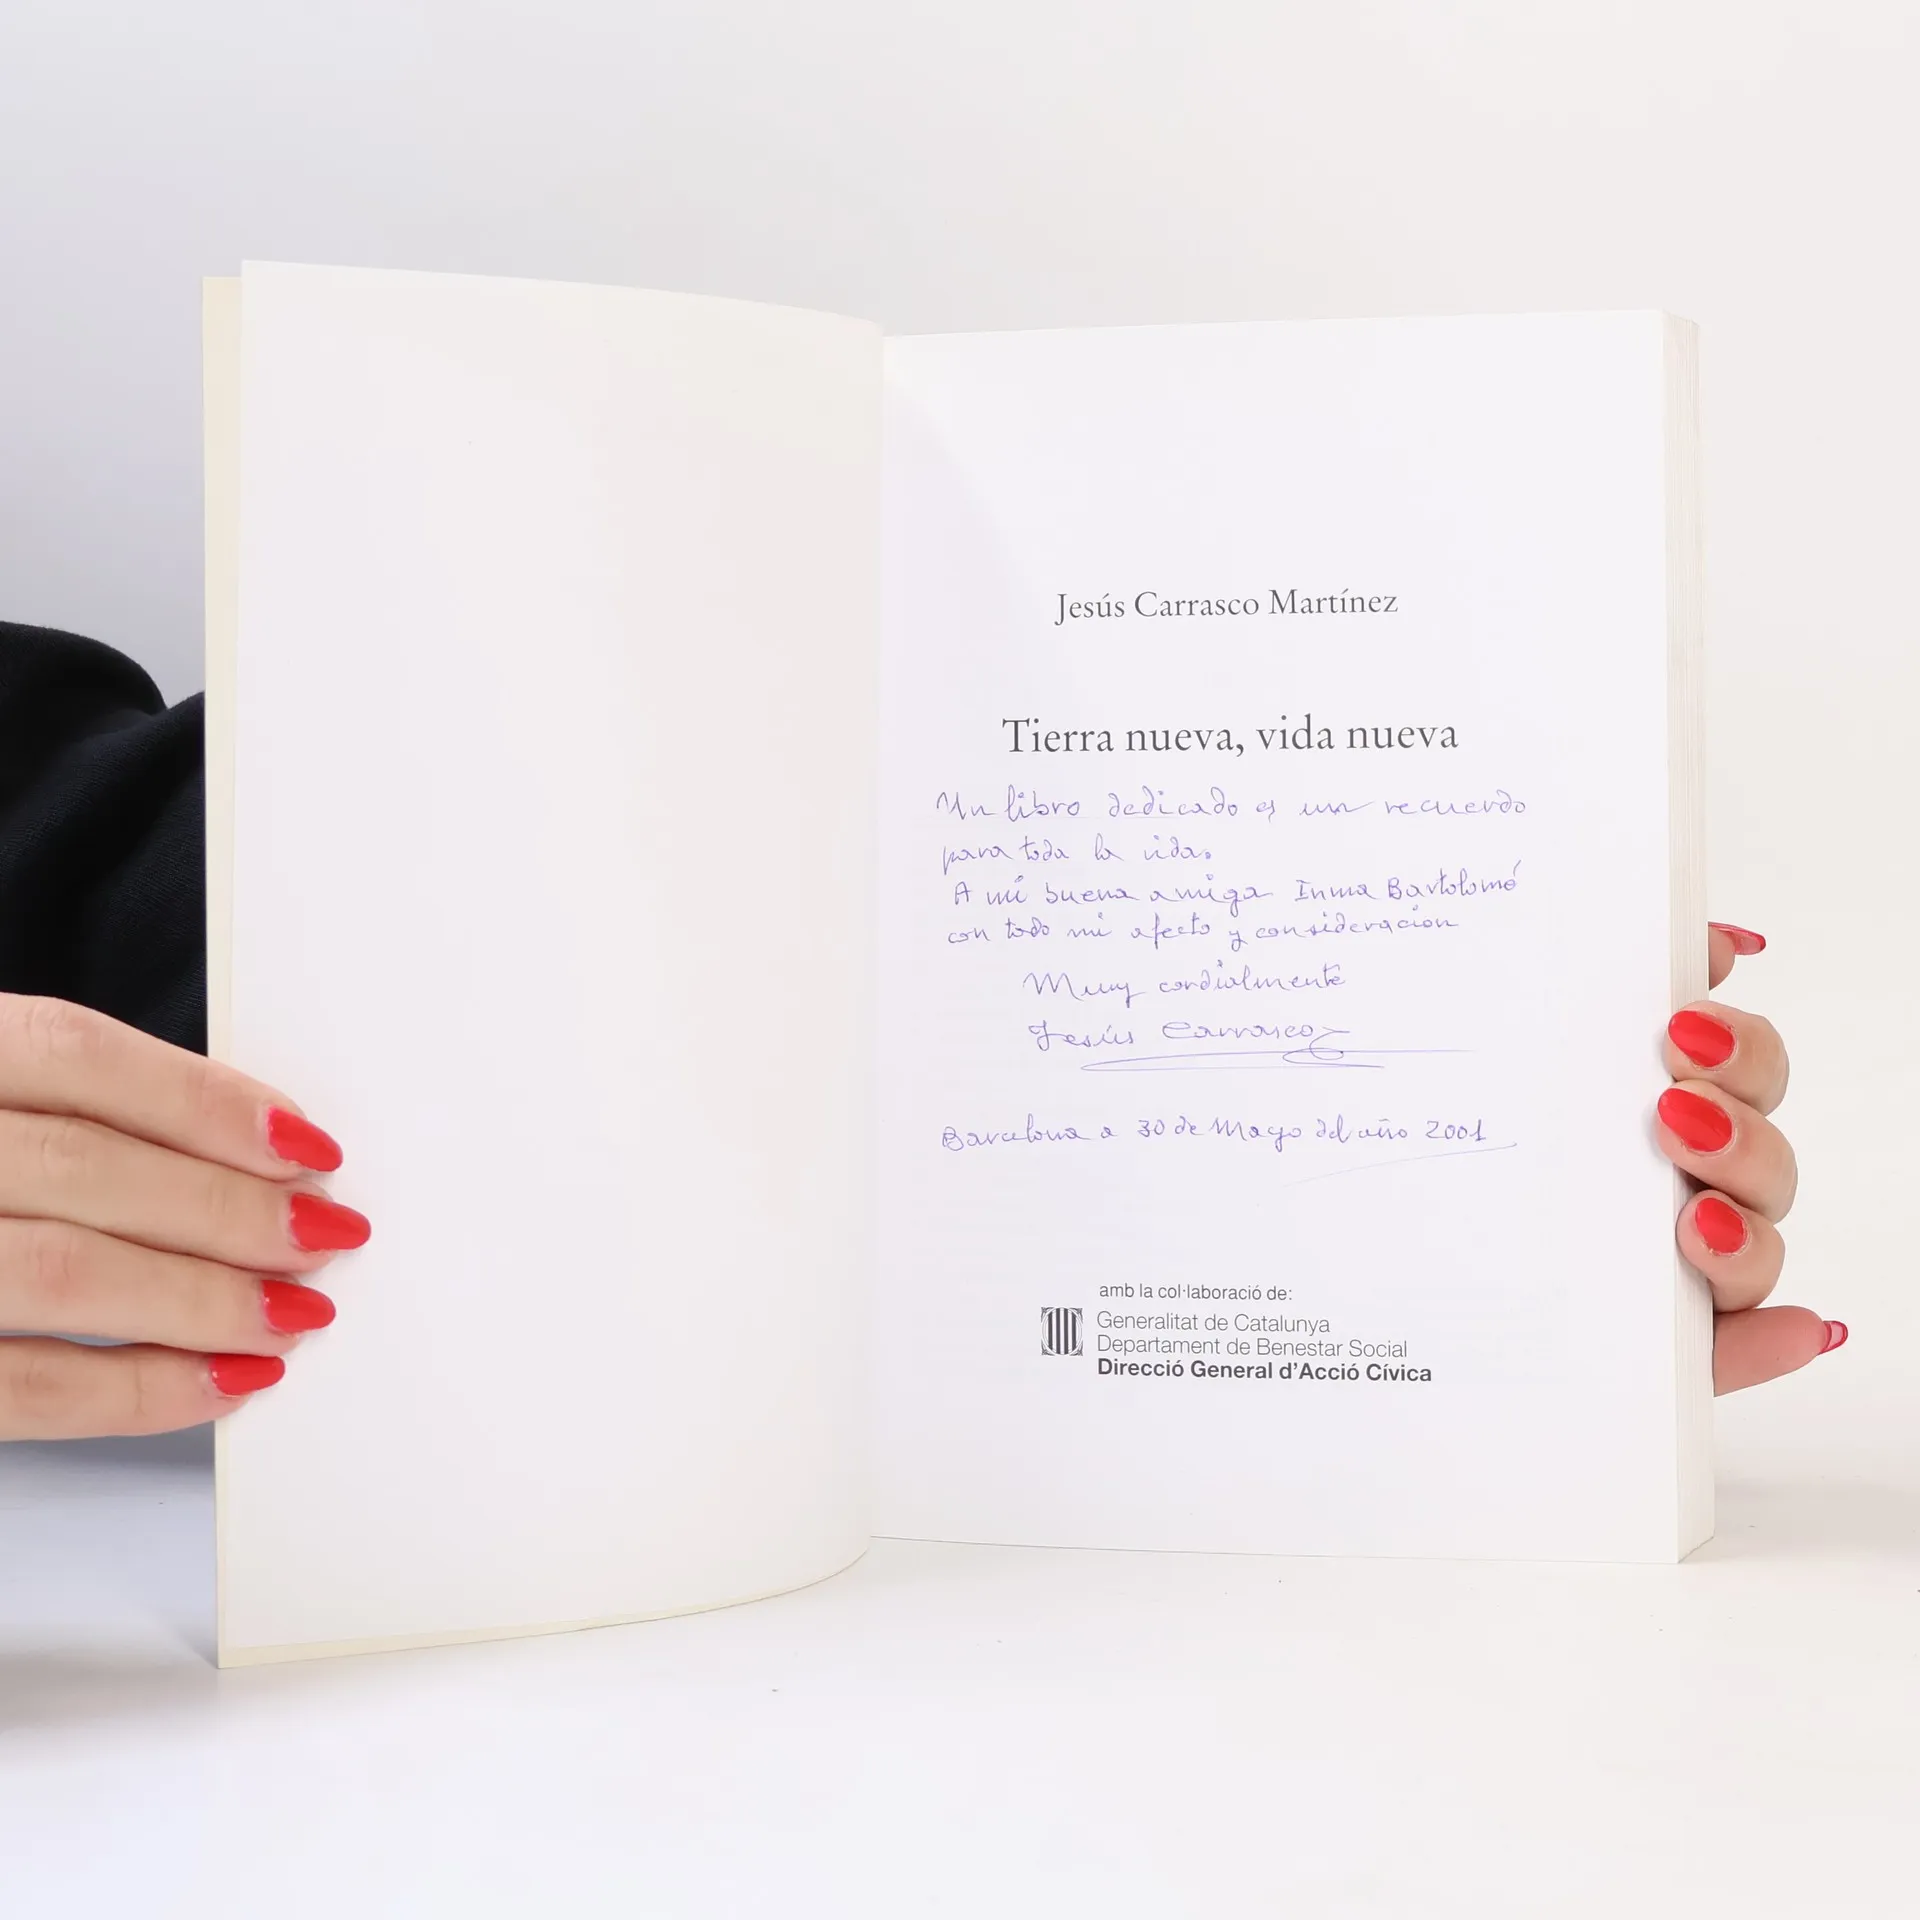 Jesús Carrasco Martínez
Tierra nueva, vida nueva
Un libro dedicado es un recuerdo
para toda la vida.
A mi buena amiga Inma Bartolomé
con todo mi afecto y consideracion
Muy cordialmente
Jesús Carrasco
Barcelona a 30 de Mayo del año 2001
amb la col·laboració de:
Generalitat de Catalunya
Departament de Benestar Social
Direcció General d'Acció Cívica